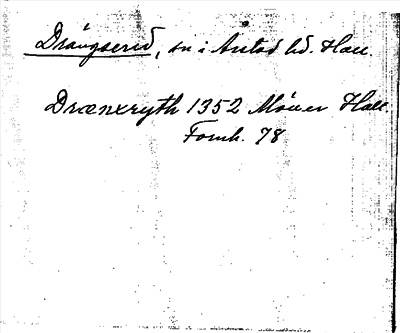 Drängserid, sn i Årstad hd. Hall.
Drænxryth 1352 Möller Hall.
Fornh. 78